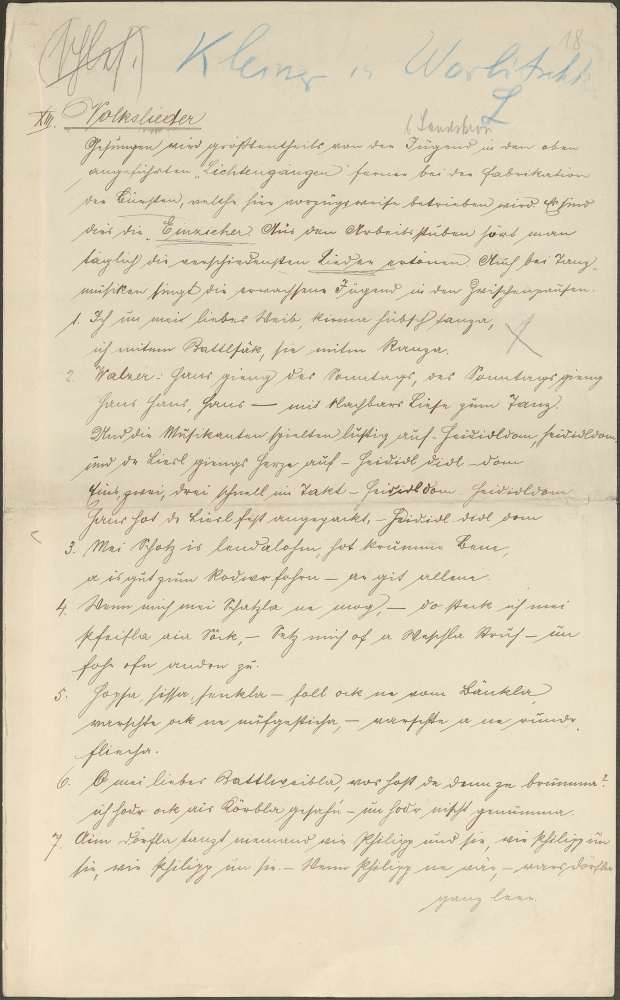 (Schles.) Kleiner in Worlitschk
18
L
(Landskron
XIV. Volkslieder
Gesungen wird größtentheils von der Jugend in den oben
angeführten „Lichtengängen" ferner bei der Fabrikation
der Bürsten, welche hier vorzugsweise betrieben wird. Es sind
dies die „Einzieher". Aus den Arbeitsstuben hört man
täglich die verschiedensten Lieder ertönen. Auch bei Tanz-
musiken singt die erwachsene Jugend in den Zwischenpausen.
1. Ich un mei liebes Weib, kenna hübsch tanza,
ich mitem Battlsåk, sie mitm Ranza.
2. Walzer: Hans gieng des Sonntags, des Sonntags gieng
Hans Hans, Hans — mit Nachbars Liese zum Tanz.
Und die Musikanten spielten lustig auf – Heididldom, heididldom,
und de Liesl giengs Herze auf – Heididl didl – dom
Eins, zwei, drei schnell im Takt – Heididldom heididldom
Hans hot de Liesl fest angepackt, – Heididl didl dom
3. Mei Schotz is lendalohm, hot krumme Bene,
a is gut zum Rodwerfohrn – ar git allene.
4. Wenn mich mei Schatzla ne mog, – do steck ich mei
Pfeifla ein Sock, – Setz mich of a Weschla Struh – un
fohr ofn anden zu.
5. Hopsa, hissa, henkla – foll ock ne vom Bänkla
warschte ock ne nufgesticha, – warschte a ne runder
fliecha.
6. O mei liebes Battlweibla, wos host de denn zu brumma?
ich hodr ock ais Körbla gesahn – un hodr nischt genumma.
7. Aim Dörfla tanzt niemand wie Philipp und sie, wie Philipp un
sie, wie Philipp un sie. – Wenn Philipp ne wär, – wärs Dörfla
ganz leer.